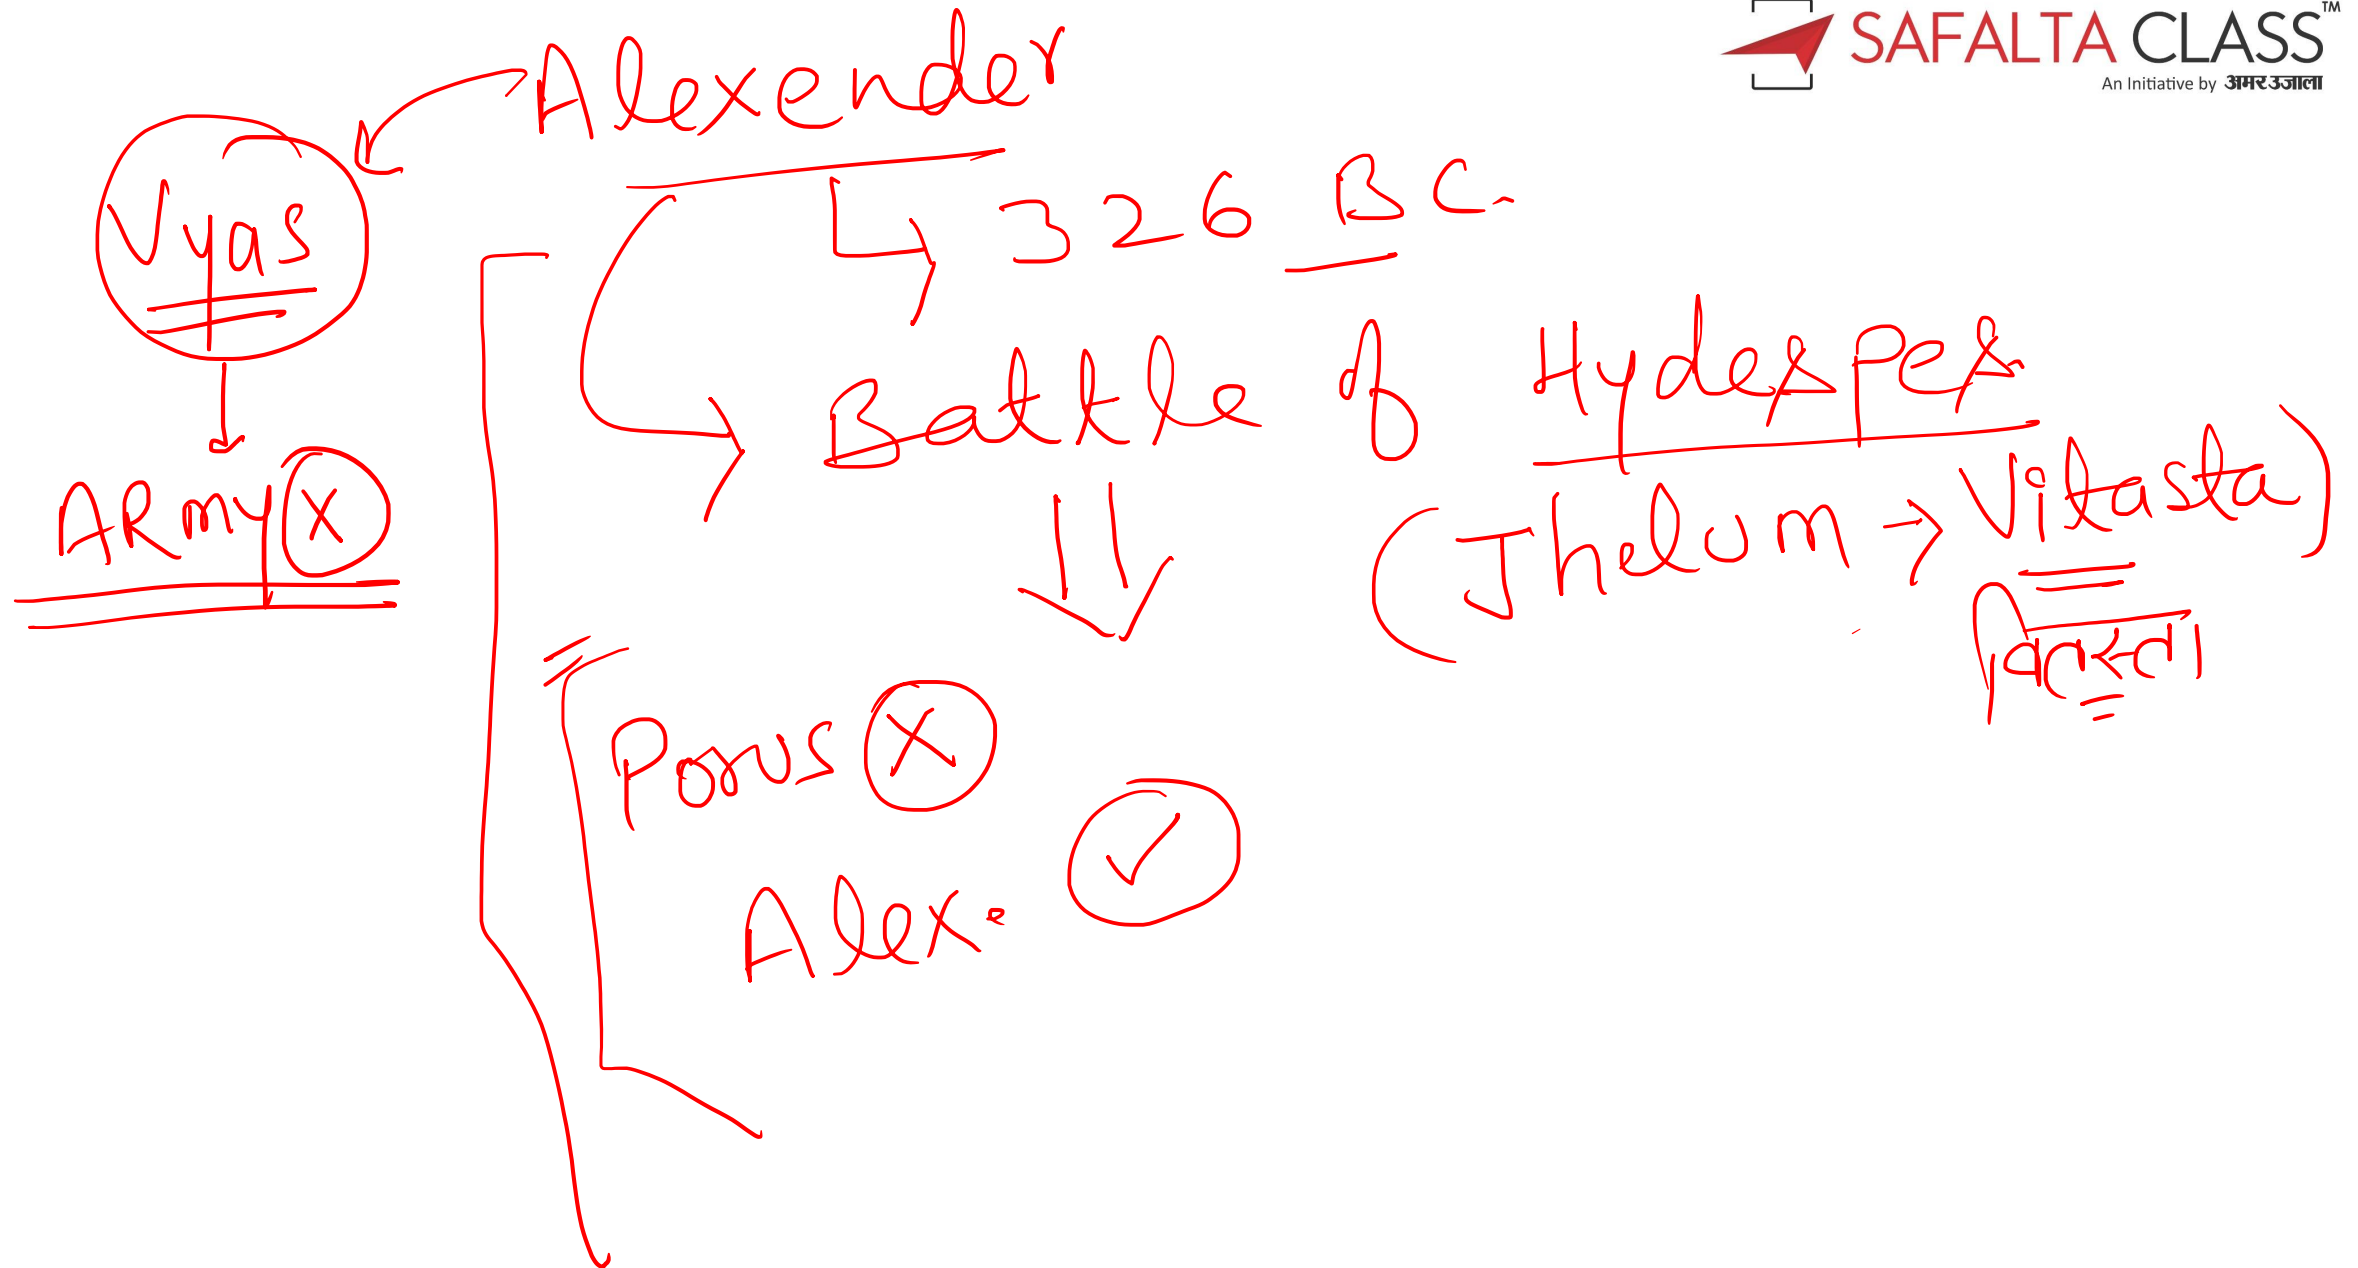 SAFALTA CLASS™
An Initiative by अमर उजाला
Alexender
326 BC.
Vyas
Battle of Hydespes
(Jhelum → Vitasta)
वितस्ता
ARmy X
Porus X
Alex. ✓